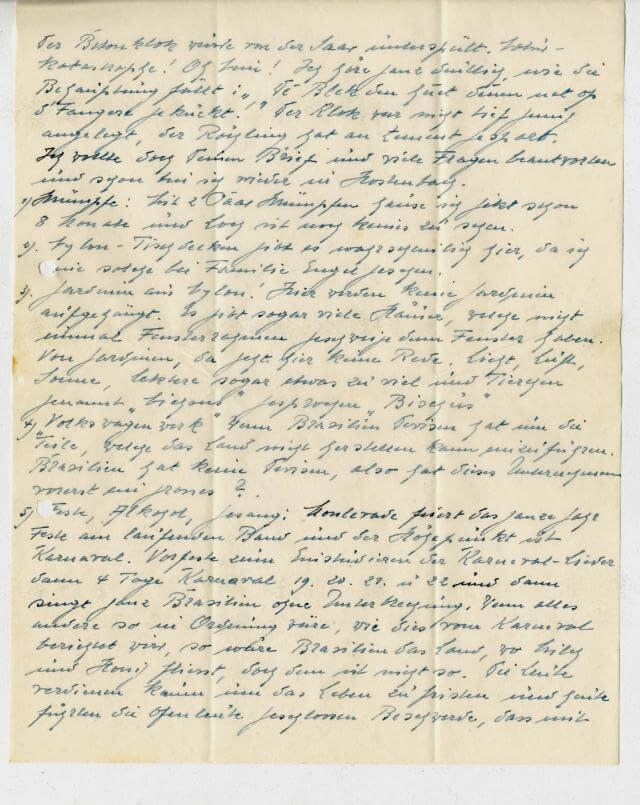 der Betonklok würde von der Saar unterspült. Satris-
katastrophe! Oh Luis! Ich höre ganz deutlich, wie die
Behauptung fällt: „Dé Blek den huet dénen net op
d'Fangere gekückt." Der Klok war nicht tief genug
angelegt, der Röchling hat an Zement gespart.
Ich wollte doch Deinen Brief und viele Fragen beantworten
und schon bin ich wieder in Hostenbach.
1) Strümpfe: Mit 2 Paar Strümpfen hause ich jetzt schon
8 Monate und Loch ist noch keines zu sehen.
2). Nylon-Tischdecken gibt es wahrscheinlich hier, da ich
nie solche bei Familie Engel gesehen.
3). Gardinen aus Nylon! Hier werden keine Gardinen
aufgehängt. Es gibt sogar viele Häuser, welche nicht
einmal Fensterrahmen geschweige denn Fenster haben.
Von Gardinen, da geht hier keine Rede. Licht, Luft,
Sonne, letztere sogar etwas zu viel und Tierchen
genannt „bichos" gesprochen „Bischus"
4) „Volkswagenwerk" Wenn Brasilien Devisen hat um die
Teile, welche das Land nicht herstellen kann einzuführen.
Brasilien hat keine Devisen, also hat dieses Unternehmen
vorerst ein grosses ?.
5) Feste, Alkohol, Gesang: Monlevade feiert das ganze Jahr
Feste am laufenden Band und der Höhepunkt ist
Karnaval. Vorfeste zum Einstudieren der Karneval-Lieder
dann 4 Tage Karnaval 19. 20. 21. u 22 und dann
singt ganz Brasilien ohne Unterbrechung. Wenn alles
andere so in Ordnung wäre, wie dies vom Karneval
berichtet wird, so wäre Brasilien das Land, wo Milch
und Honig fliesst, doch dem ist nicht so. Die Leute
verdienen kaum um das Leben zu fristen und heute
führten die Ofenleute geschlossen Beschwerde, dass mit